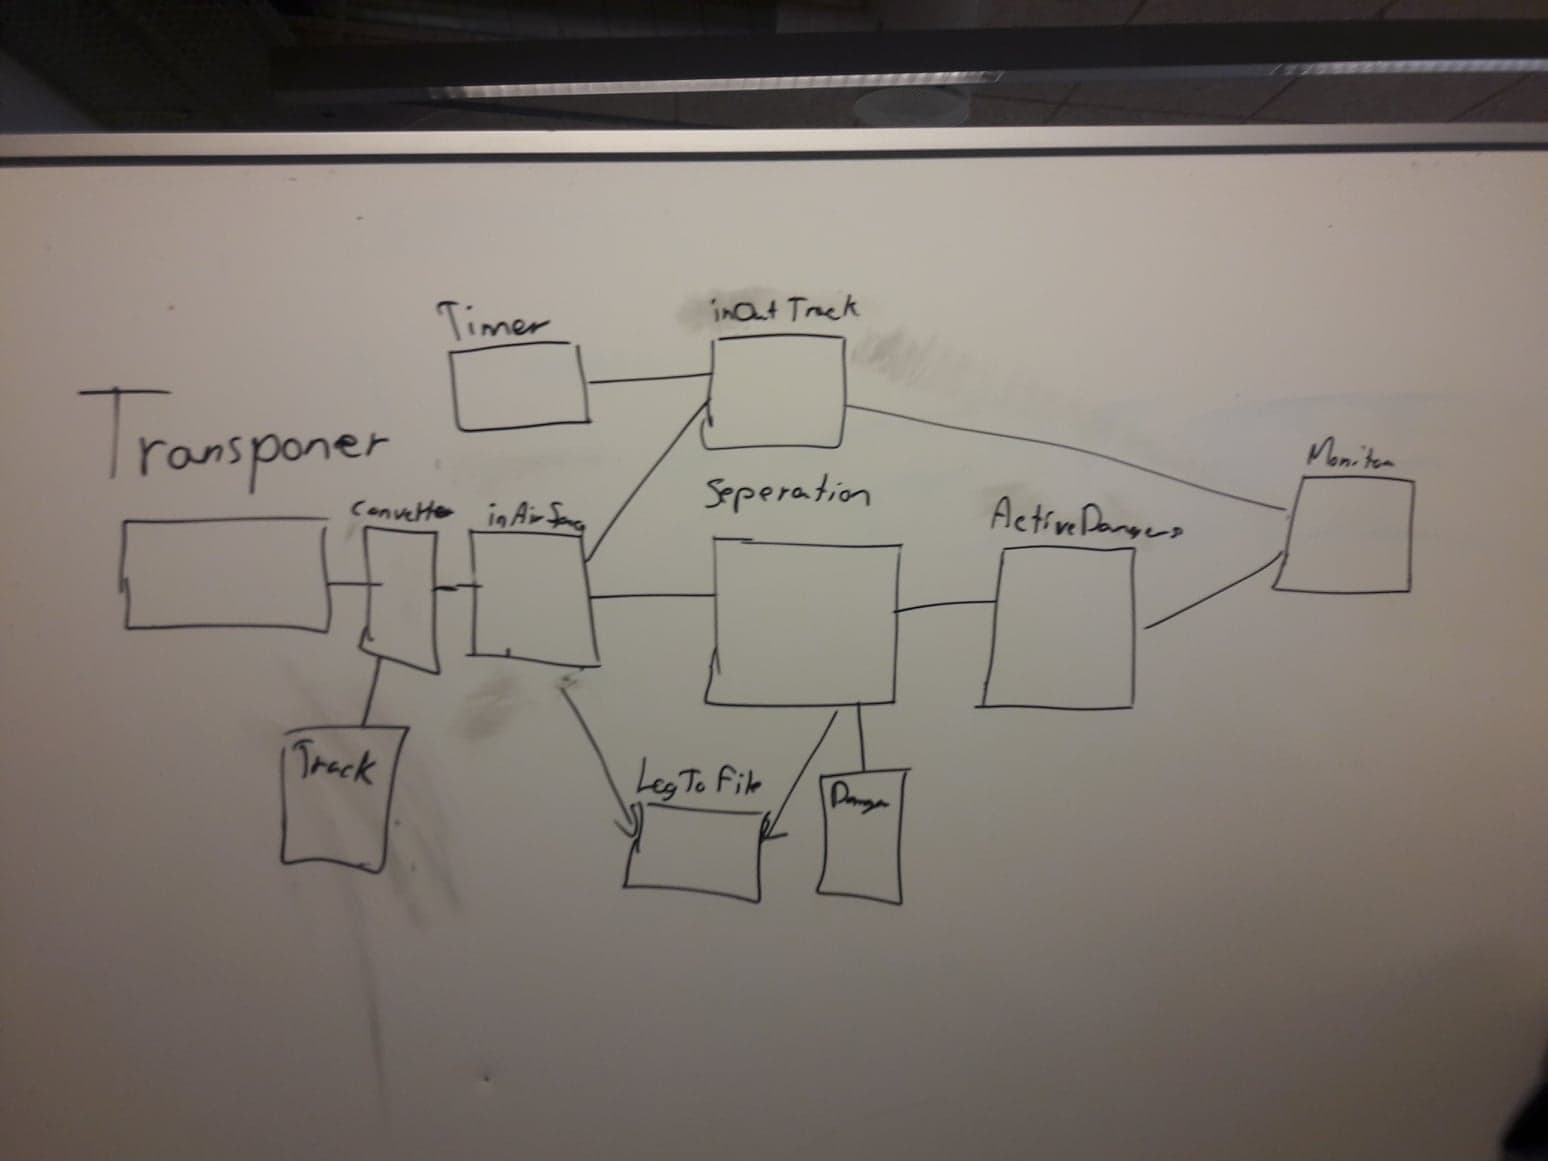 Timer
inOut Track
Transponer
Converter
Seperation
ActiveDangers
Monitor
Track
Log To File
Danger